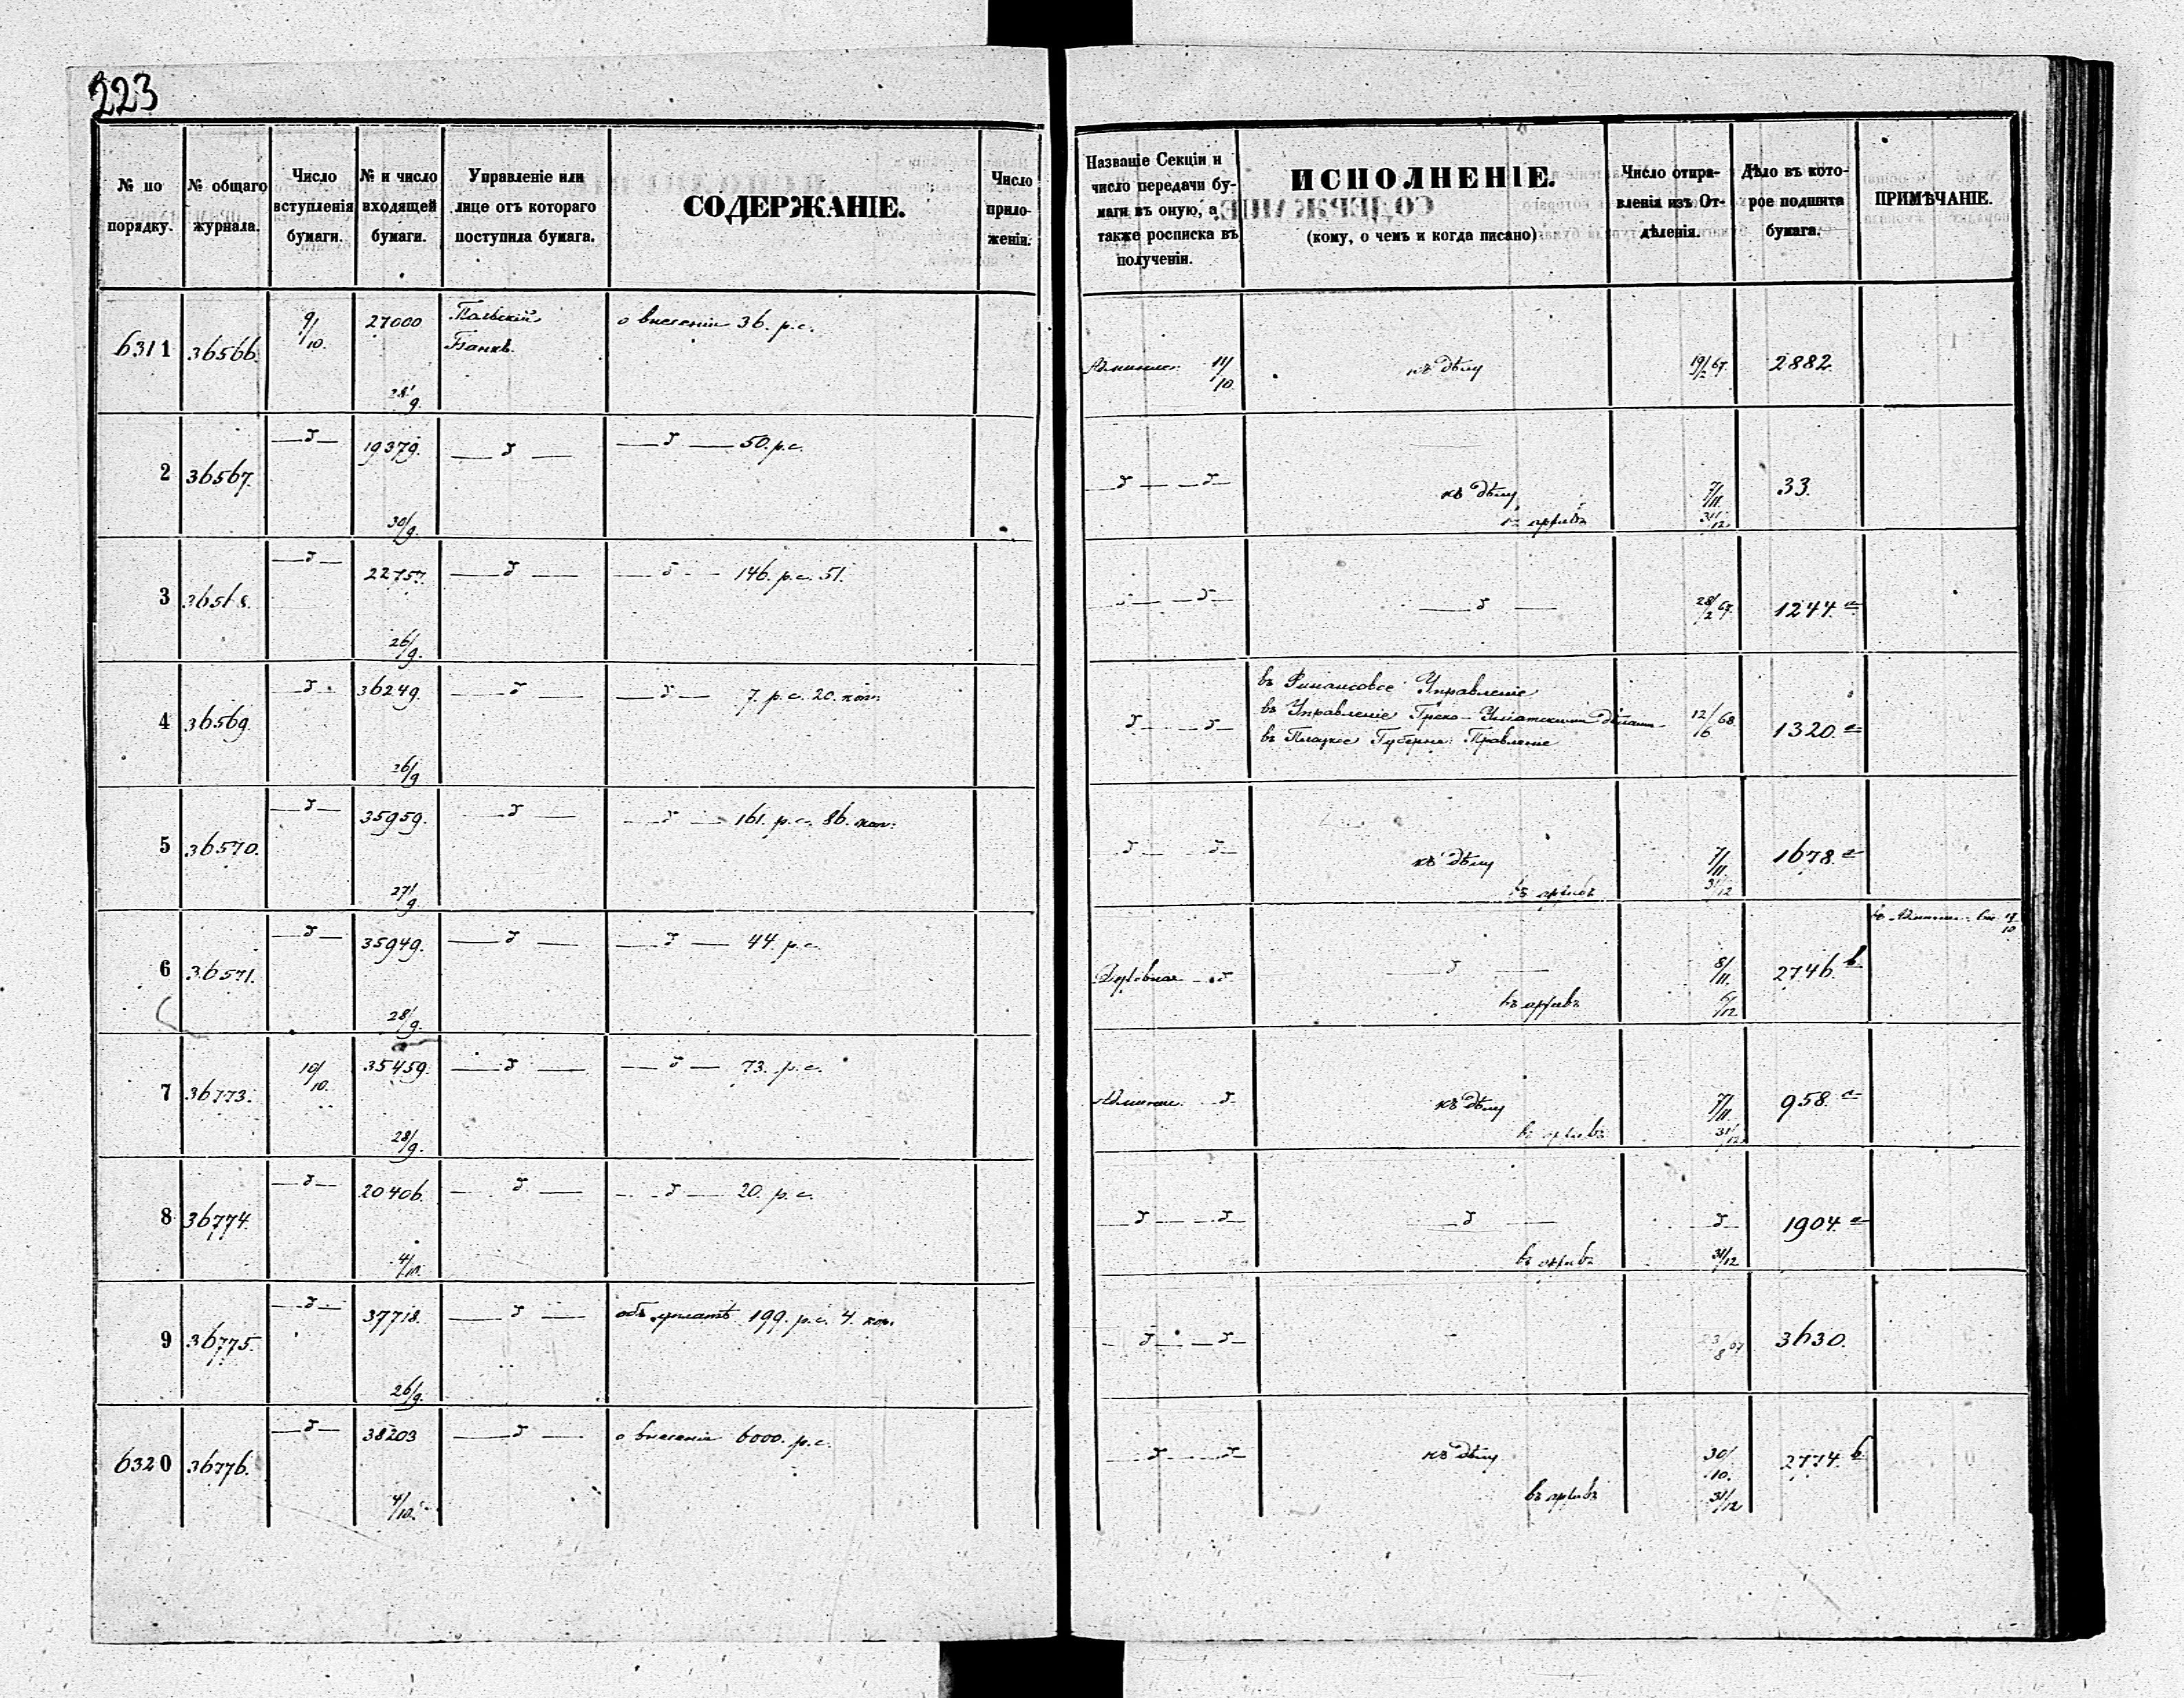 223
№ по порядку.
№ общаго журнала.
Число вступленія бумаги.
№ и число входящей бумаги.
Управленіе или лице отъ котораго поступила бумага.
СОДЕРЖАНІЕ.
Число прило- женіи.
Названіе Секціи и число передачи бу- маги въ оную, а также росписка въ полученіи.
ИСПОЛНЕНІЕ.
(кому, о чемъ и когда писано)
Число отпра- вленія изъ От- дѣленія.
Дѣло въ кото- рое подшита бумага.
ПРИМѢЧАНІЕ.
6311 36566. 9/10. 27000 28/9. Польскій Банкъ. о внесеніи 36. р.с. 14/10 къ дѣлу 19/2 67. 2882.
2 36567. 19379. 30/9. 50. р.с. къ дѣлу 7/11. 33.
въ архивъ 31/12.
3 36568. 22757. 26/9. 146. р.с. 51. 28/2 67. 1244. a
4 36569. 36249. 26/9 7. р.с. 20. коп. въ Финансовое Управленіе
въ Управленіе Греко-Уніатскими дѣлами 12/16 68. 1320. a
въ Плоцкое Губерн: Правленіе
5 36570. 35959. 27/9 161. р.с. 86. коп. къ дѣлу 7/11. 1678. a
въ архивъ 31/12
6 36571. 35949. 28/9. 44. р.с. Духовная 8/11. 2746. b
въ архивъ 6/12
7 36773. 10/10. 35459. 28/9. 73. р.с. къ дѣлу 7/11. 958. a
въ архивъ 31/12
8 36774. 20406. 4/10. 20. р.с. 1904. a
въ архивъ 31/12
9 36775. 37718. 26/9. объ уплатѣ 199. р.с. 4. коп. 23/8 67 3630.
6320 36776. 38203 4/10. о внесеніи 6000. р.с. къ дѣлу 30/10. 2774. b
въ архивъ 31/12